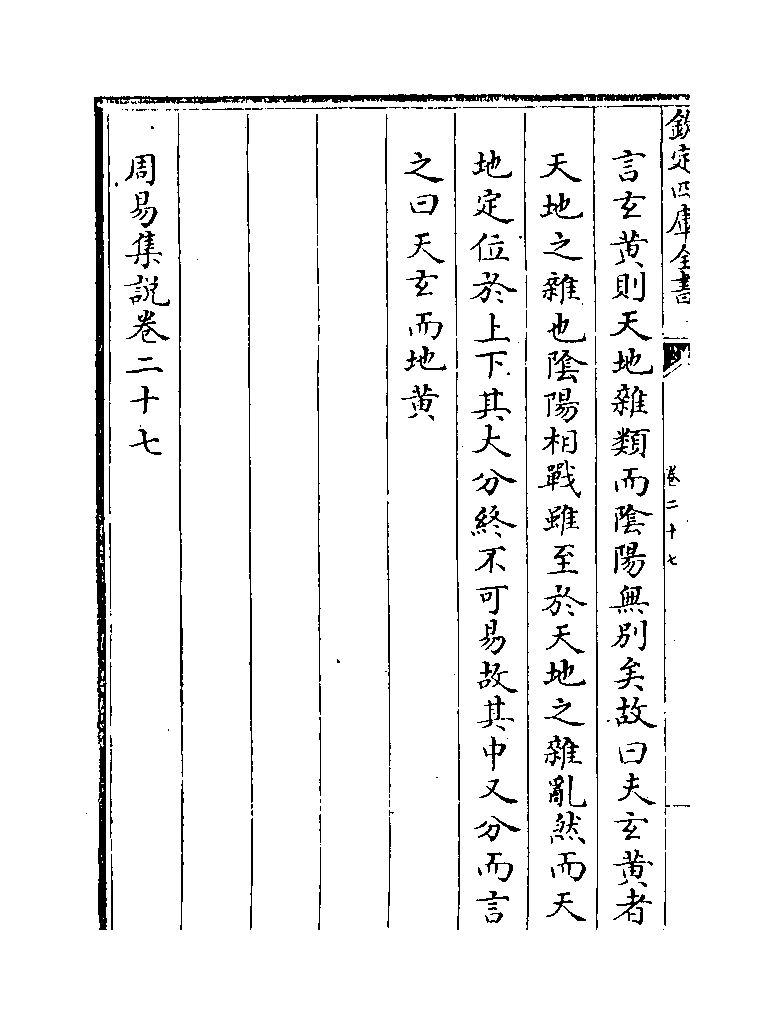 欽定四庫全書
卷二十七
言玄黄則天地雜類而陰陽無别矣故曰夫玄黄者
天地之雜也陰陽相戰雖至於天地之雜亂然而天
地定位於上下其大分終不可易故其中又分而言
之曰天玄而地黄
周易集說卷二十七